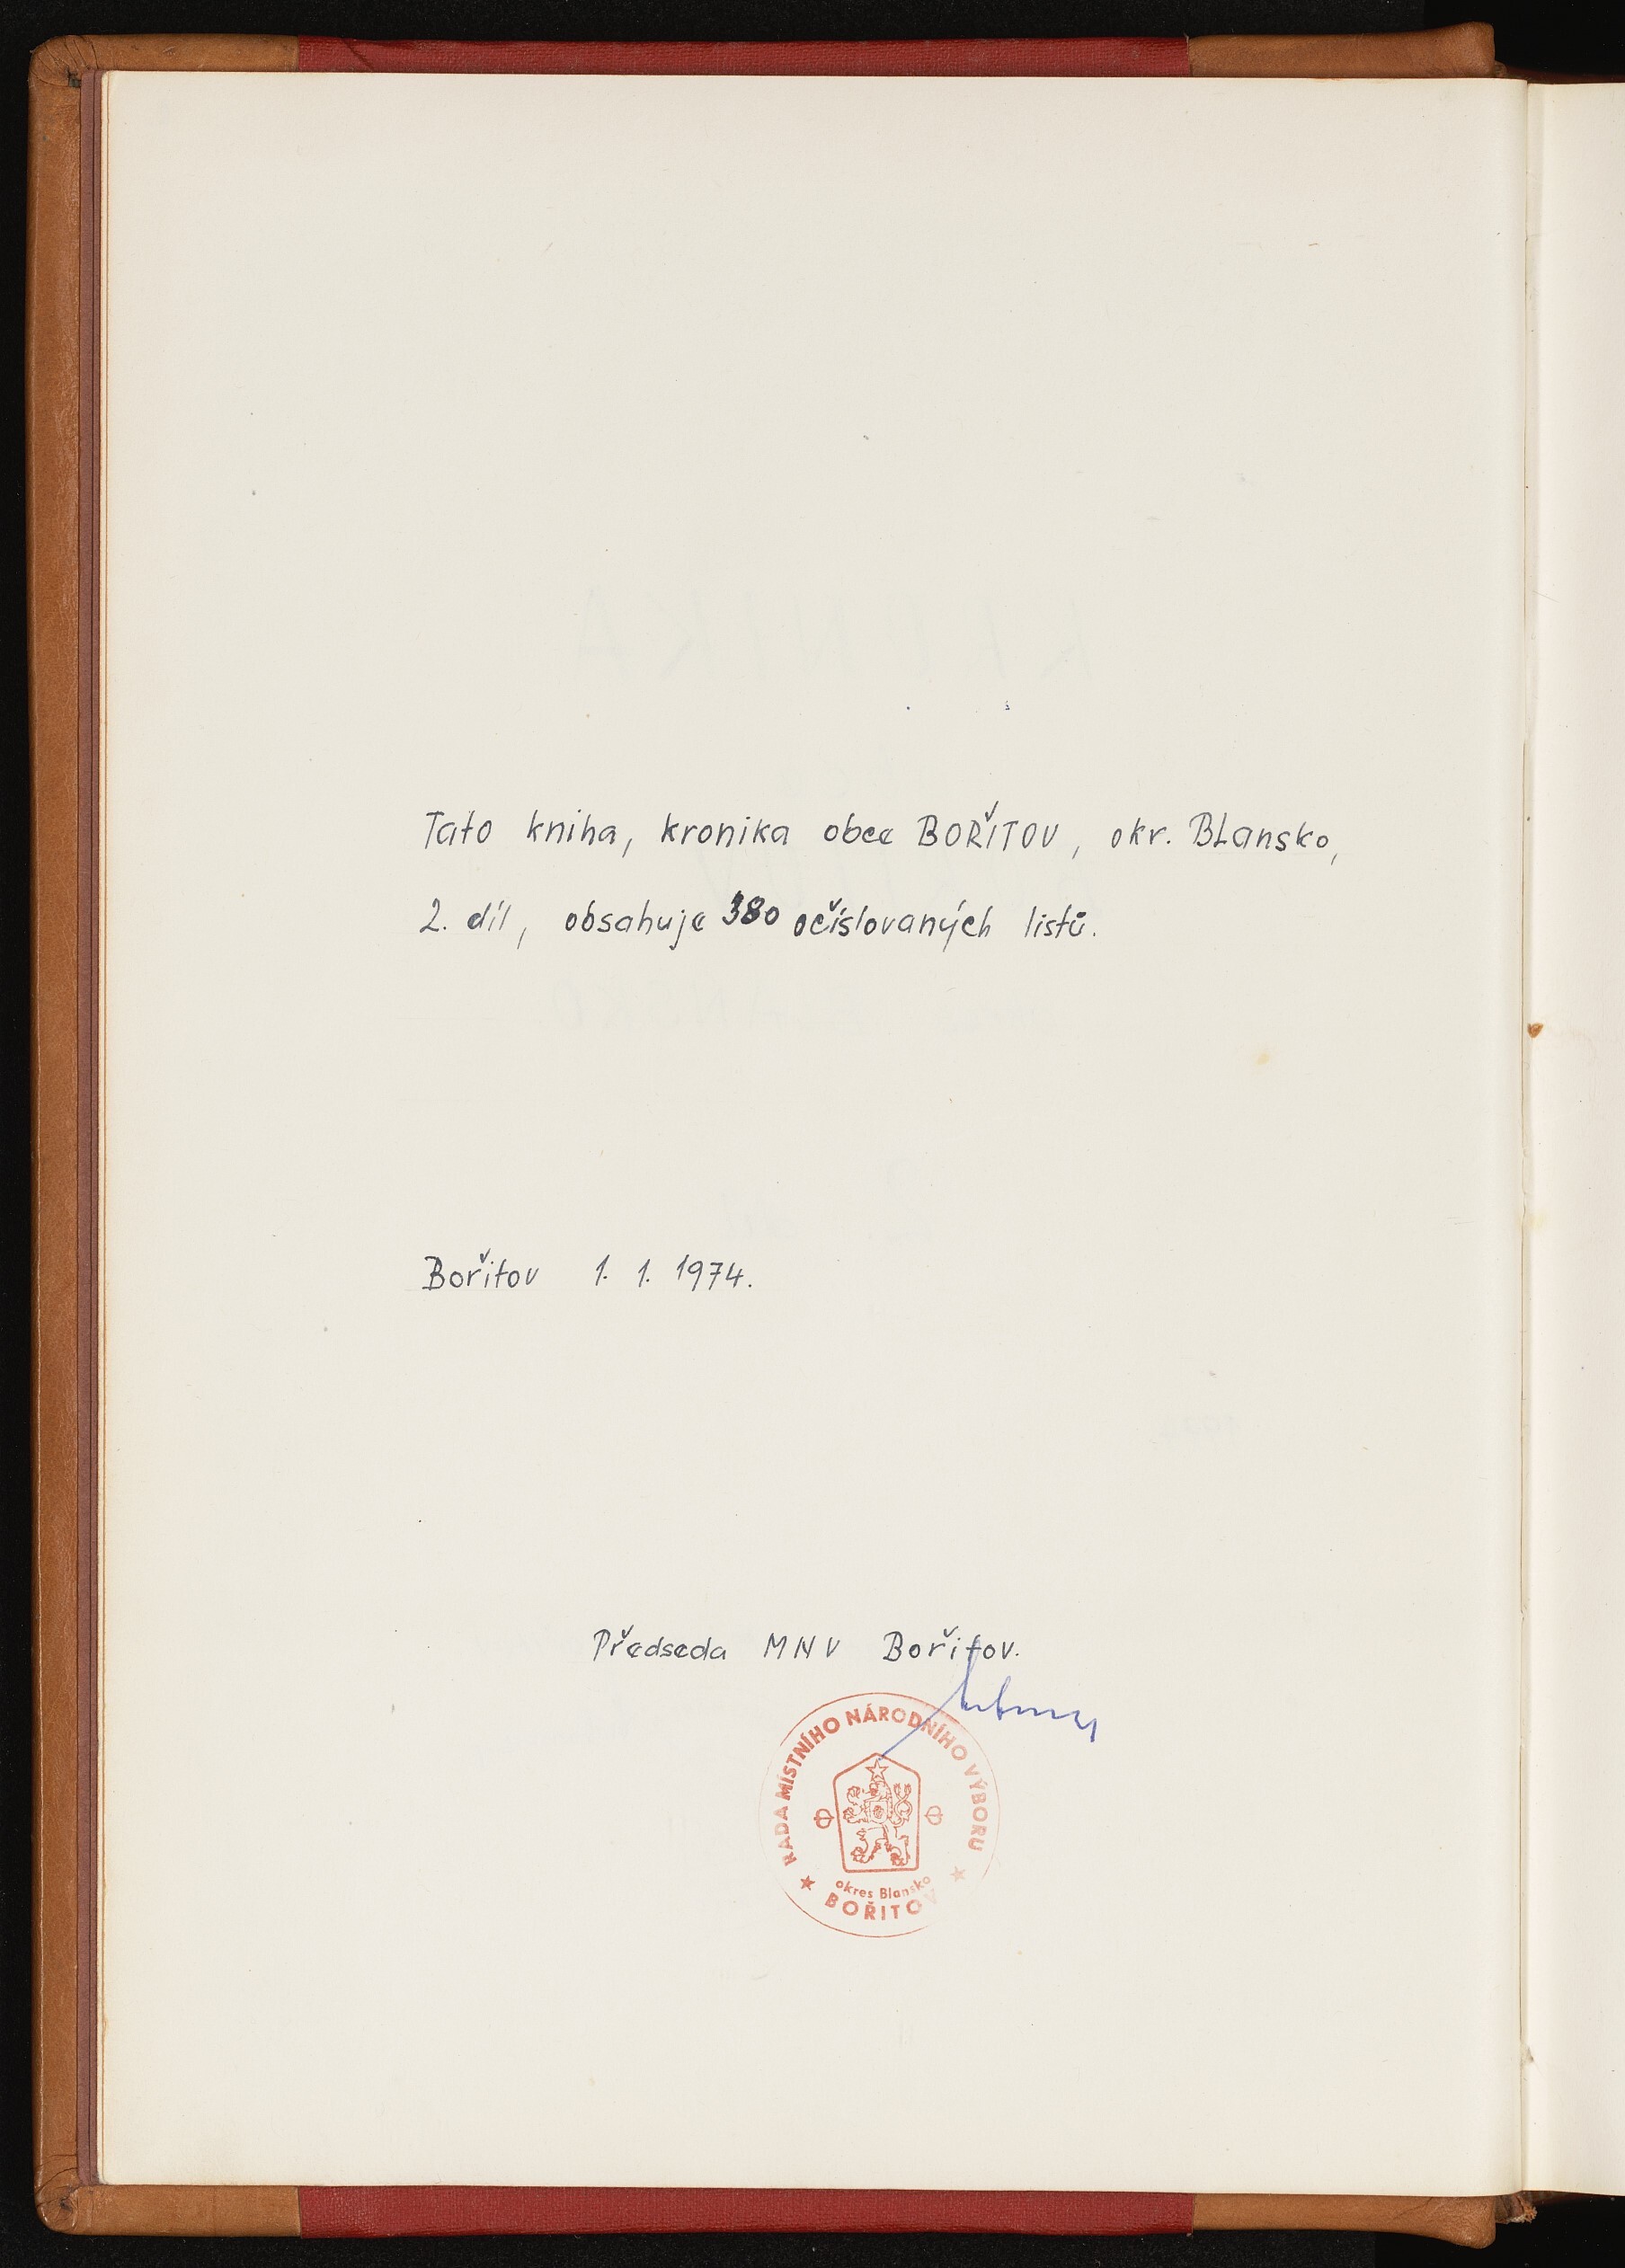 Tato kniha, kronika obce BOŘITOV, okr. BLansko,
2. díl, obsahuje 380 očíslovaných listů.
Bořitov 1. 1. 1974.
Předseda MNV Bořitov.
RADA MÍSTNÍHO NÁRODNÍHO VÝBORU
okres Blansko
★ BOŘITOV ★